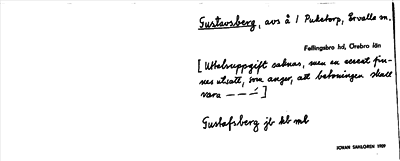 Gustavsberg, avs å 1 Puketorp, Ervalla sn.
Fellingsbro hd, Örebro län
[Uttalsuppgift saknas, men en accent fin-
nes utsatt, som anger, att betoningen skall
vara – – –́ – ]
Gustafsberg jb kb mb
JOHAN SAHLGREN 1909